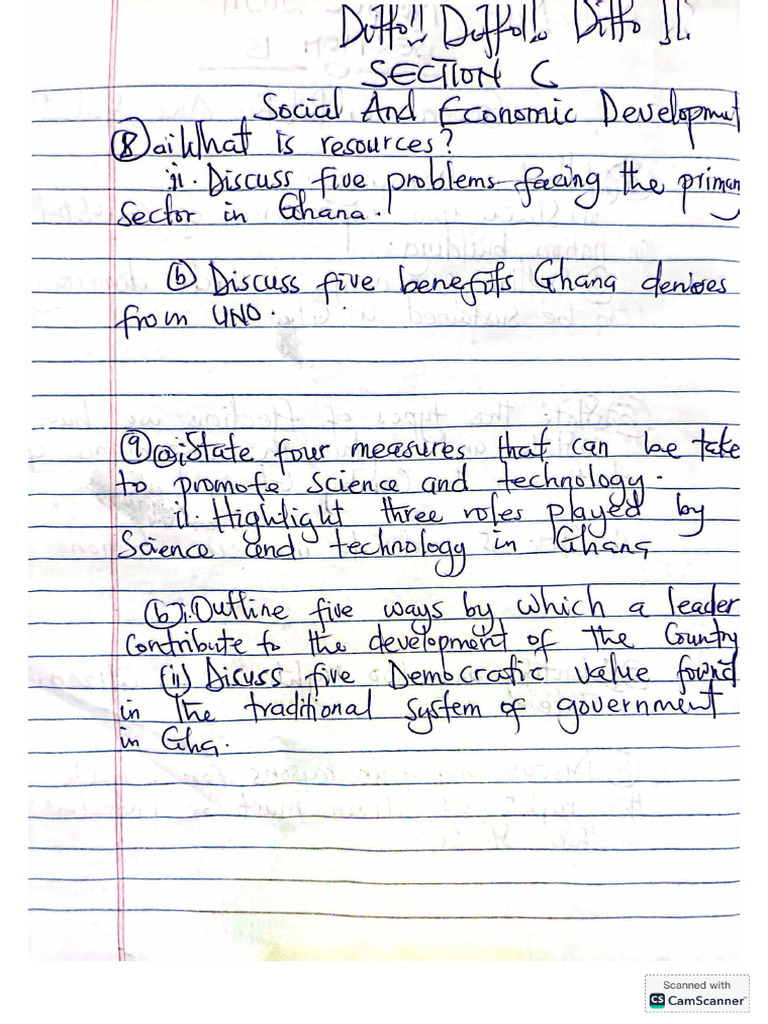 Ditto!! Ditto!! Ditto !!.
SECTION C
Social And Economic Development
8 ai What is resources?
ii. Discuss five problems facing the primary
Sector in Ghana.
(b) Discuss five benefits Ghana derives
from UNO.
9 (a) i State four measures that can be take
to promote science and technology.
ii. Highlight three roles played by
Science and technology in Ghana
(b) i. Outline five ways by which a leader
Contribute to the development of the Country
(ii) Discuss five Democratic value found
in the traditional system of government
in Gha.
Scanned with
CS CamScanner